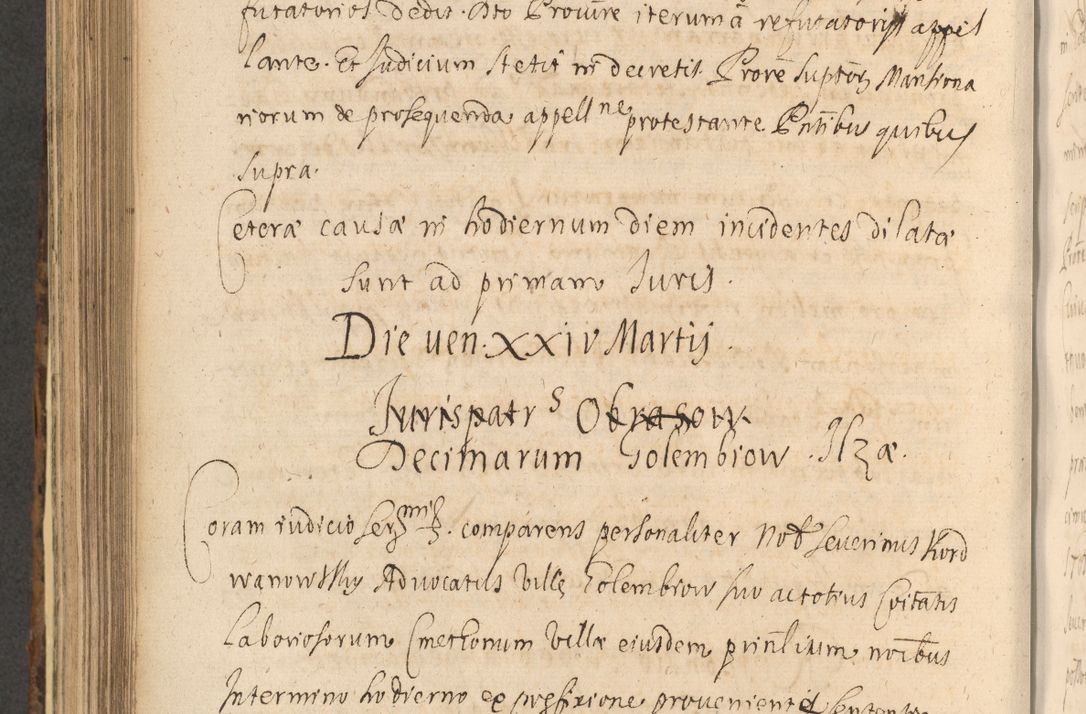 futatorios dedit. Dto Procure iterum á refutatorijs appel
lante. Et Judicium stetit in decretis Prore suptorum Mansiona
riorum de prosequenda appellne protestante Pntibus quibus
supra.
Ceteræ causæ in hodiernum diem incidentes dilatæ
sunt ad primam Juris.
Die ven. XXIV Martij.
Jurispatrs Obrasow.
Decimarum Golembiow. Ilzæ.
Coram iudicio comparens personaliter Nob Severinus Kord
wanowskij Advocatus Villę Golembiow suo ac totius Coitatis
Laboriosorum Cmethonum Villæ eiusdem prinlium noibus
In termino hodierno ex præfixione proveniente